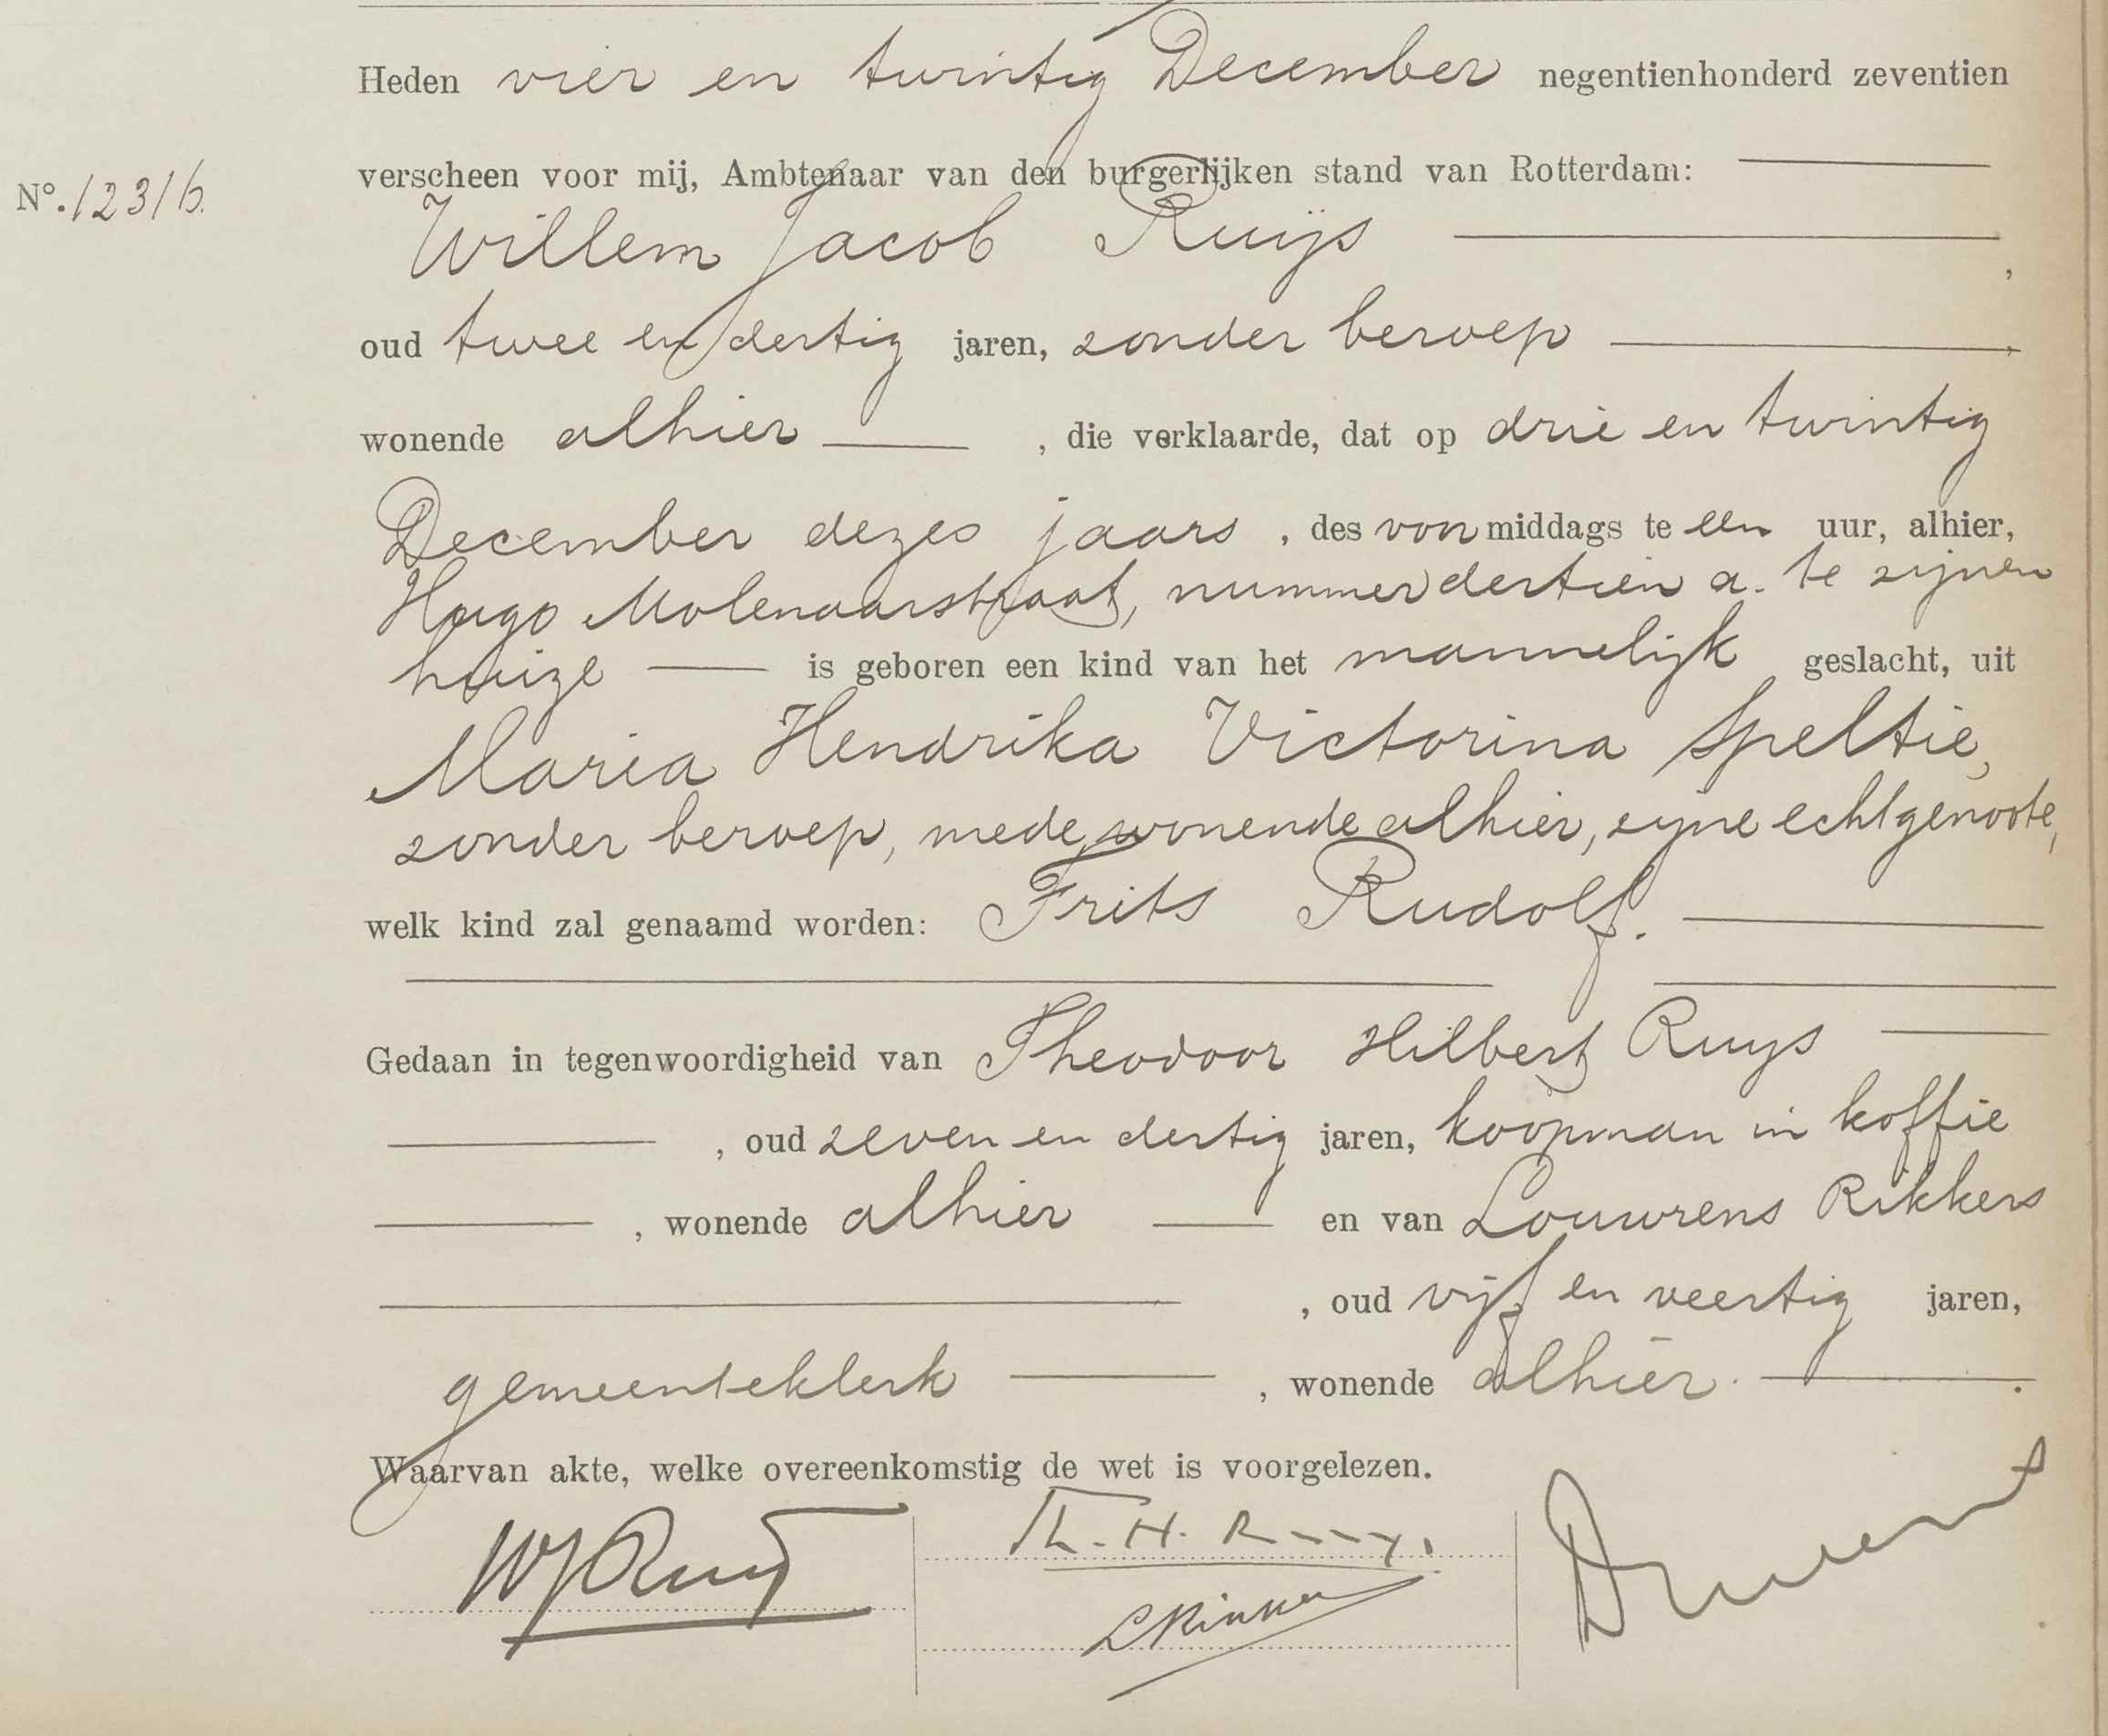 Heden vier en twintig December negentienhonderd zeventien
verscheen voor mij, Ambtenaar van den burgerlijken stand van Rotterdam:
Nº. 12316.
Willem Jacob Ruijs ,
oud twee en dertig jaren, zonder beroep ,
wonende alhier , die verklaarde, dat op drie en twintig
December dezes jaars , des voormiddags te een uur, alhier,
Hugo Molenaarstraat, nummer dertien a. te zijnen
huize is geboren een kind van het mannelijk geslacht, uit
Maria Hendrika Victorina Speltie,
zonder beroep, mede wonende alhier, zijne echtgenoote,
welk kind zal genaamd worden: Frits Rudolf.
Gedaan in tegenwoordigheid van Theodoor Hilbert Ruys
, oud zeven en dertig jaren, koopman in koffie
, wonende alhier en van Louwrens Rikkers
, oud vijf en veertig jaren,
gemeenteklerk , wonende alhier.
Waarvan akte, welke overeenkomstig de wet is voorgelezen.
WJRuys
Th. H. Ruys.
LRikkers